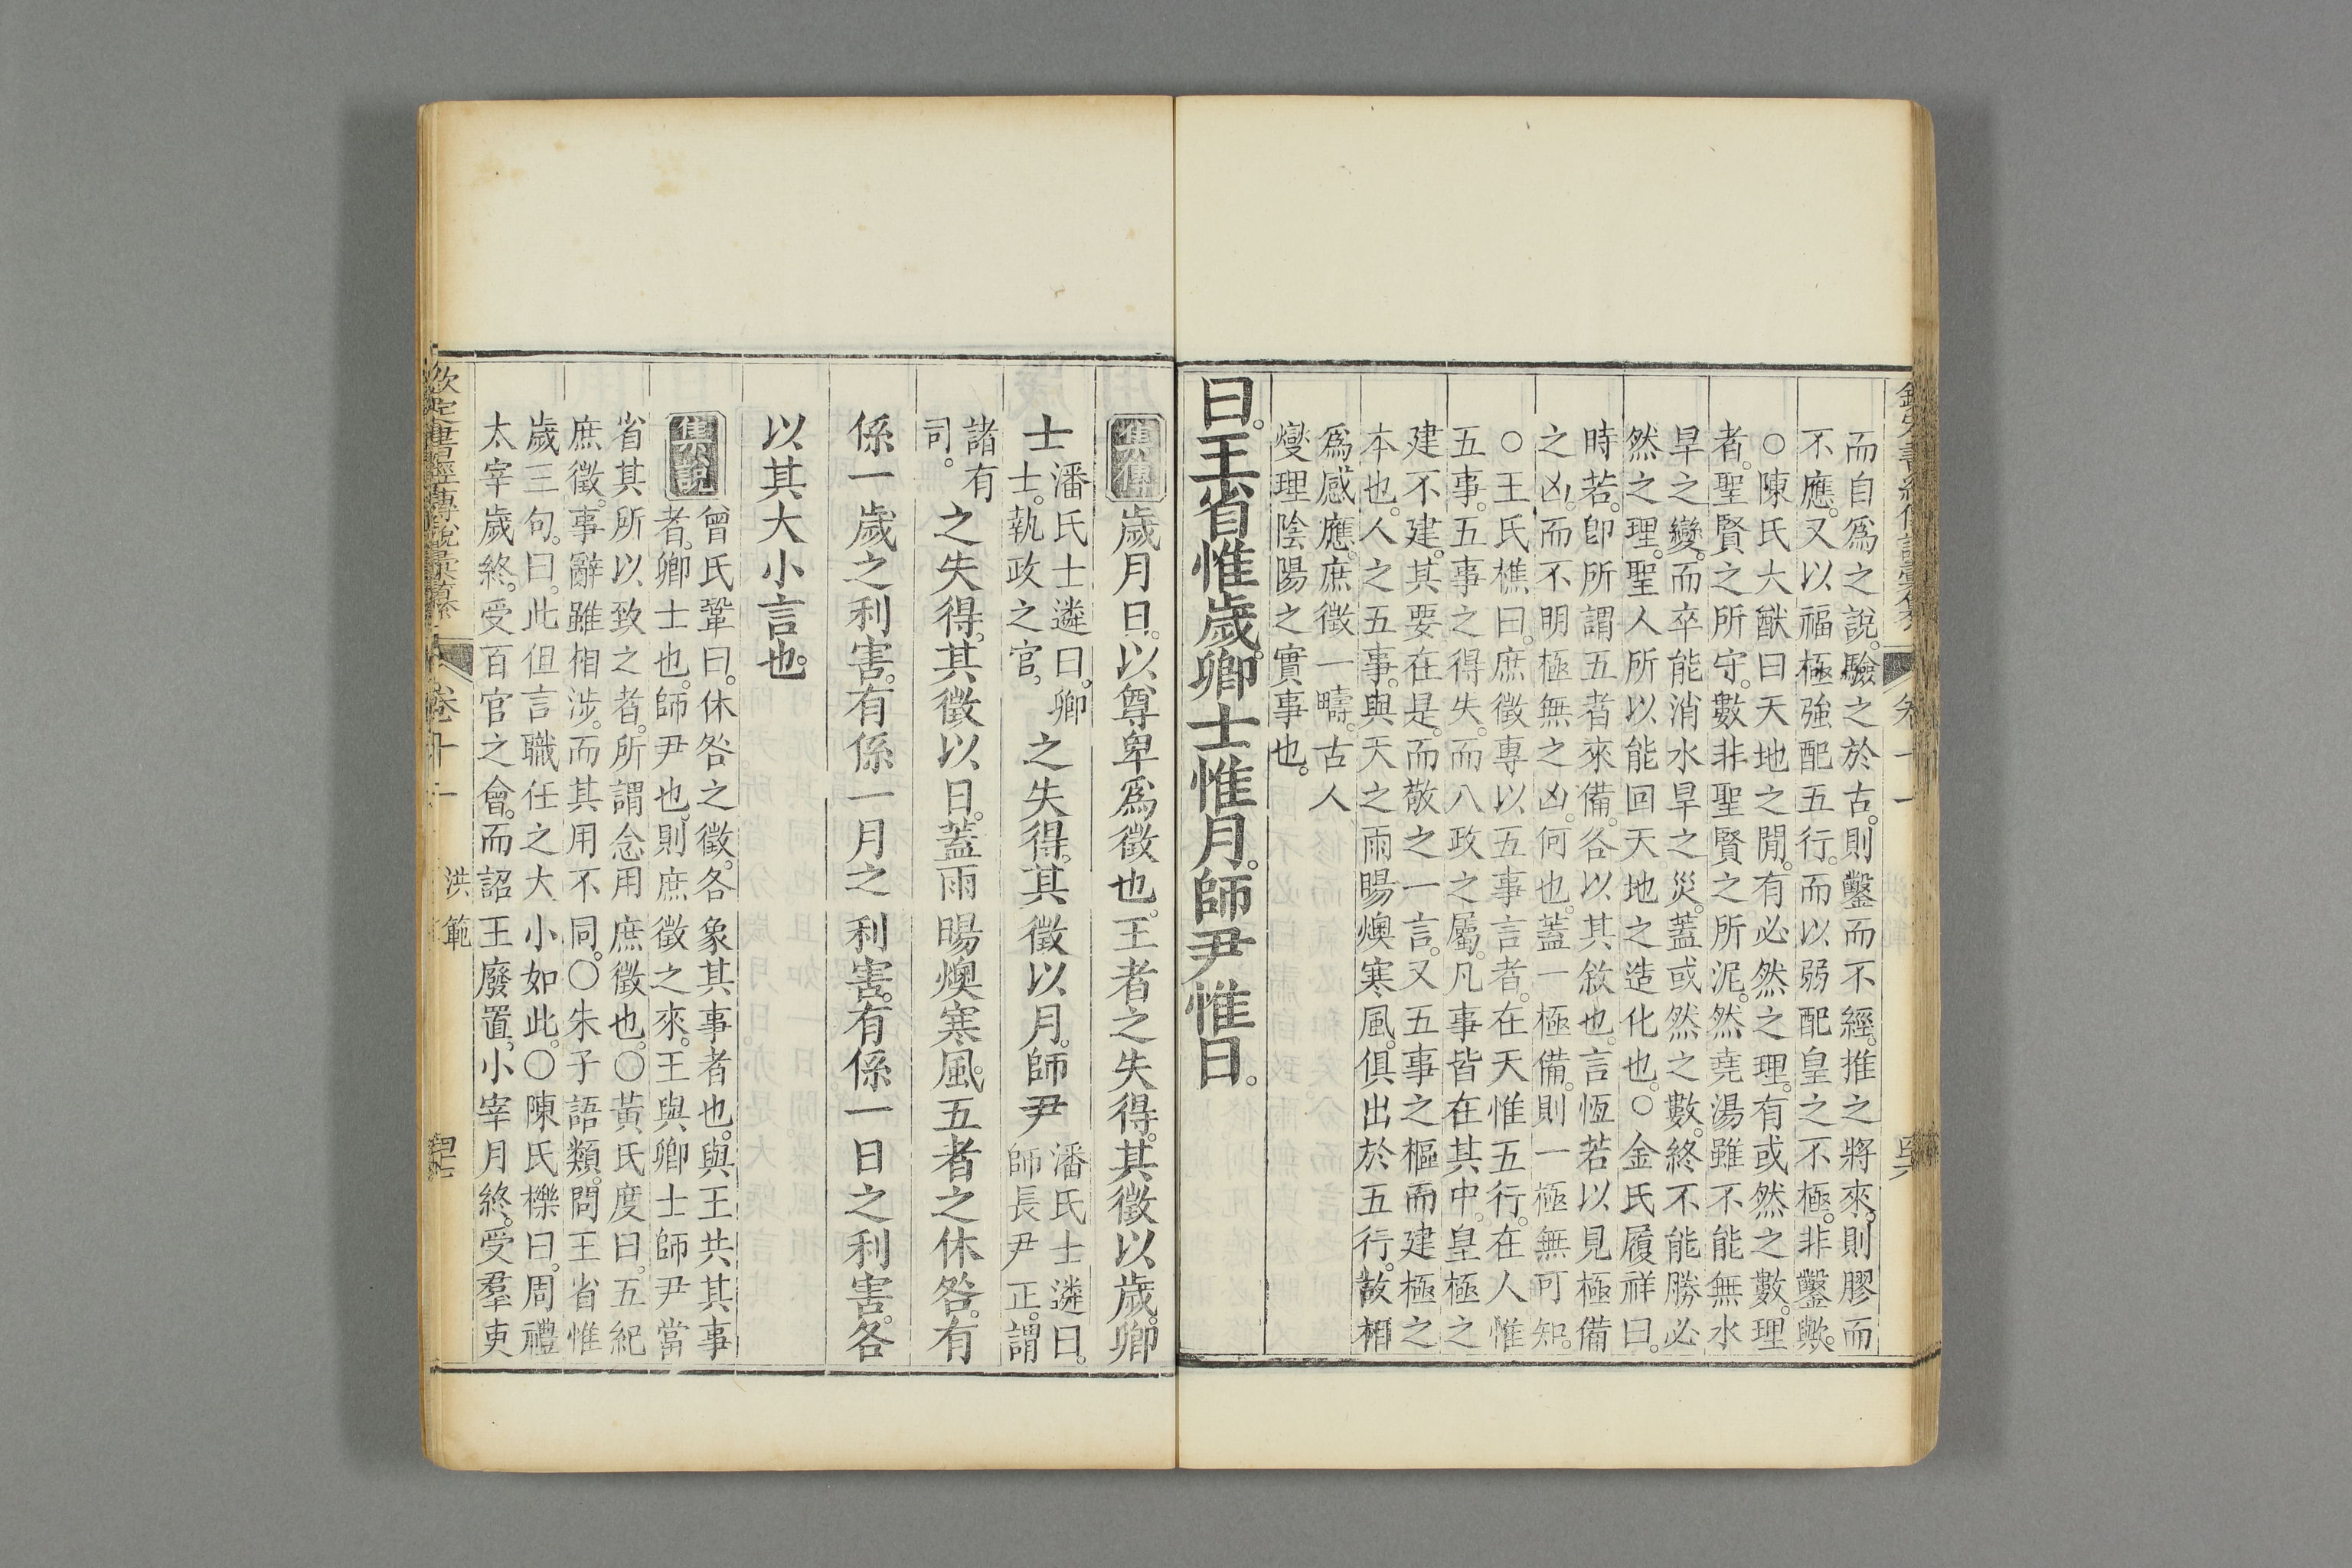 而自爲之說。驗之於古。則鑿而不經。推之將來。則膠而
不應。又以福極強配五行。而以弱配皇之不極。非鑿歟。
○陳氏大猷曰。天地之閒。有必然之理。有或然之數。理
者。聖賢之所守。數非聖賢之所泥。然堯湯雖不能無水
旱之變。而卒能消水旱之災。蓋或然之數。終不能勝必
然之理。聖人所以能回天地之造化也。○金氏履祥曰。
時若。卽所謂五者來備。各以其敘也。言恆若以見極備
之凶。而不明極無之凶。何也。蓋一極備。則一極無可知。
○王氏樵曰。庶徵專以五事言者。在天惟五行。在人惟
五事。五事之得失。而八政之屬。凡事皆在其中。皇極之
建不建。其要在是。而敬之一言。又五事之樞。而建極之
本也。人之五事。與天之雨暘燠寒風。俱出於五行。故相
爲感應。庶徵一疇。古人
燮理陰陽之實事也。
曰。王省惟歲。卿士惟月。師尹惟日。
集傳 歲月日。以尊卑爲徵也。王者之失得。其徵以歲。卿
士 潘氏士遴曰。卿士。執政之官。 之失得。其徵以月。師尹 潘氏士遴曰。師長尹正。謂
諸有司。 之失得。其徵以日。蓋雨暘燠寒風。五者之休咎。有
係一歲之利害。有係一月之利害。有係一日之利害。各
以其大小言也。
集說 曾氏鞏曰。休咎之徵。各象其事者也。與王共其事
者。卿士也。師尹也。則庶徵之來。王與卿士師尹當
省其所以致之者。所謂念用庶徵也。○黃氏度曰。五紀
庶徵。事辭雖相涉。而其用不同。○朱子語類。問王省惟
歲三句。曰。此但言職任之大小如此。○陳氏櫟曰。周禮
太宰歲終。受百官之會。而詔王廢置。小宰月終。受羣吏
欽定書經傳說彙纂 卷十一 洪範